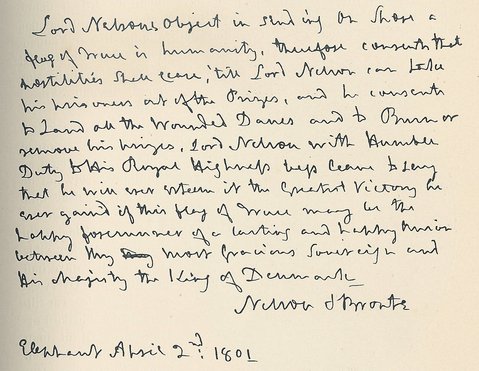 Lord Nelsons object in sending on Shore a
flag of Truce is humanity, therefore consents that
hostilities shall cease, 'till Lord Nelson can take
his prisoners out of the Prizes, and he consents
to Land all the Wounded Danes and to Burn or
remove his prizes, Lord Nelson with Humble
Duty to His Royal Highness begs leave to say
that he will ever esteem it the Greatest Victory he
ever gained if this flag of Truce may be the
happy forerunner of a lasting and happy union
between my most Gracious Sovereign and
His Majesty the King of Denmark
Nelson & Bronte
Elephant April 2nd: 1801